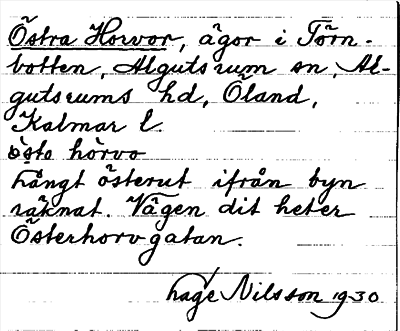 Östra Horvor, ägor i Törn-
botten, Algutsrum sn, Al-
gutsrums hd, Öland,
Kalmar l.
östo hòrvo
Långt österut ifrån byn
räknat. Vägen dit heter
Österhorvgatan.
Hage Nilsson 1930